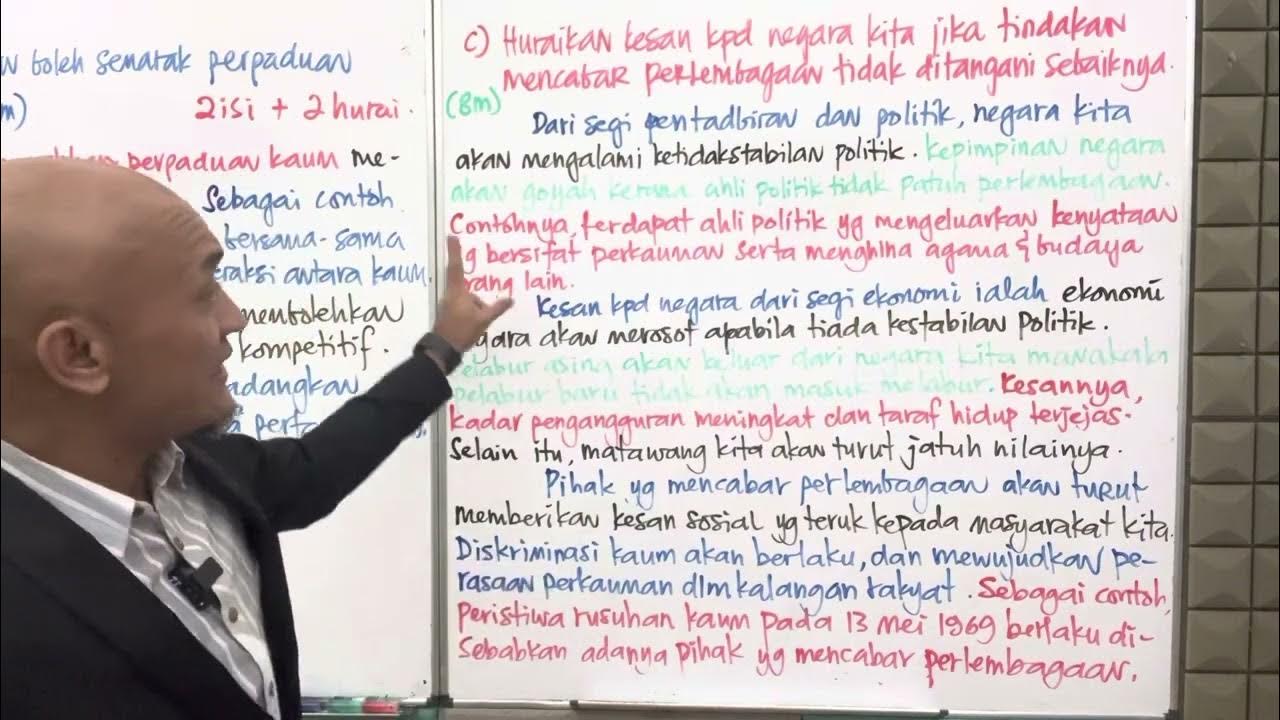 boleh semarak perpaduan
2 isi + 2 hurai.
perpaduan kaum me-
Sebagai contoh
bersama-sama
antara kaum.
membolehkan
kompetitif.
c) Huraikan kesan kpd negara kita jika tindakan
mencabar perlembagaan tidak ditangani sebaiknya.
(8m)
Dari segi pentadbiran dan politik, negara kita
akan mengalami ketidakstabilan politik. Kepimpinan negara
akan goyah kerana ahli politik tidak patuh perlembagaan.
Contohnya, terdapat ahli politik yg mengeluarkan kenyataan
bersifat perkauman serta menghina agama & budaya
lain.
Kesan kpd negara dari segi ekonomi ialah ekonomi
akan merosot apabila tiada kestabilan politik.
asing akan keluar dari negara kita manakala
pelabur baru tidak akan masuk melabur. Kesannya,
kadar pengangguran meningkat dan taraf hidup terjejas.
Selain itu, matawang kita akan turut jatuh nilainya.
Pihak yg mencabar perlembagaan akan turut
memberikan kesan sosial yg teruk kepada masyarakat kita.
Diskriminasi kaum akan berlaku, dan mewujudkan pe-
rasaan perkauman dlm kalangan rakyat. Sebagai contoh,
peristiwa rusuhan kaum pada 13 mei 1969 berlaku di-
sebabkan adanya pihak yg mencabar perlembagaan.